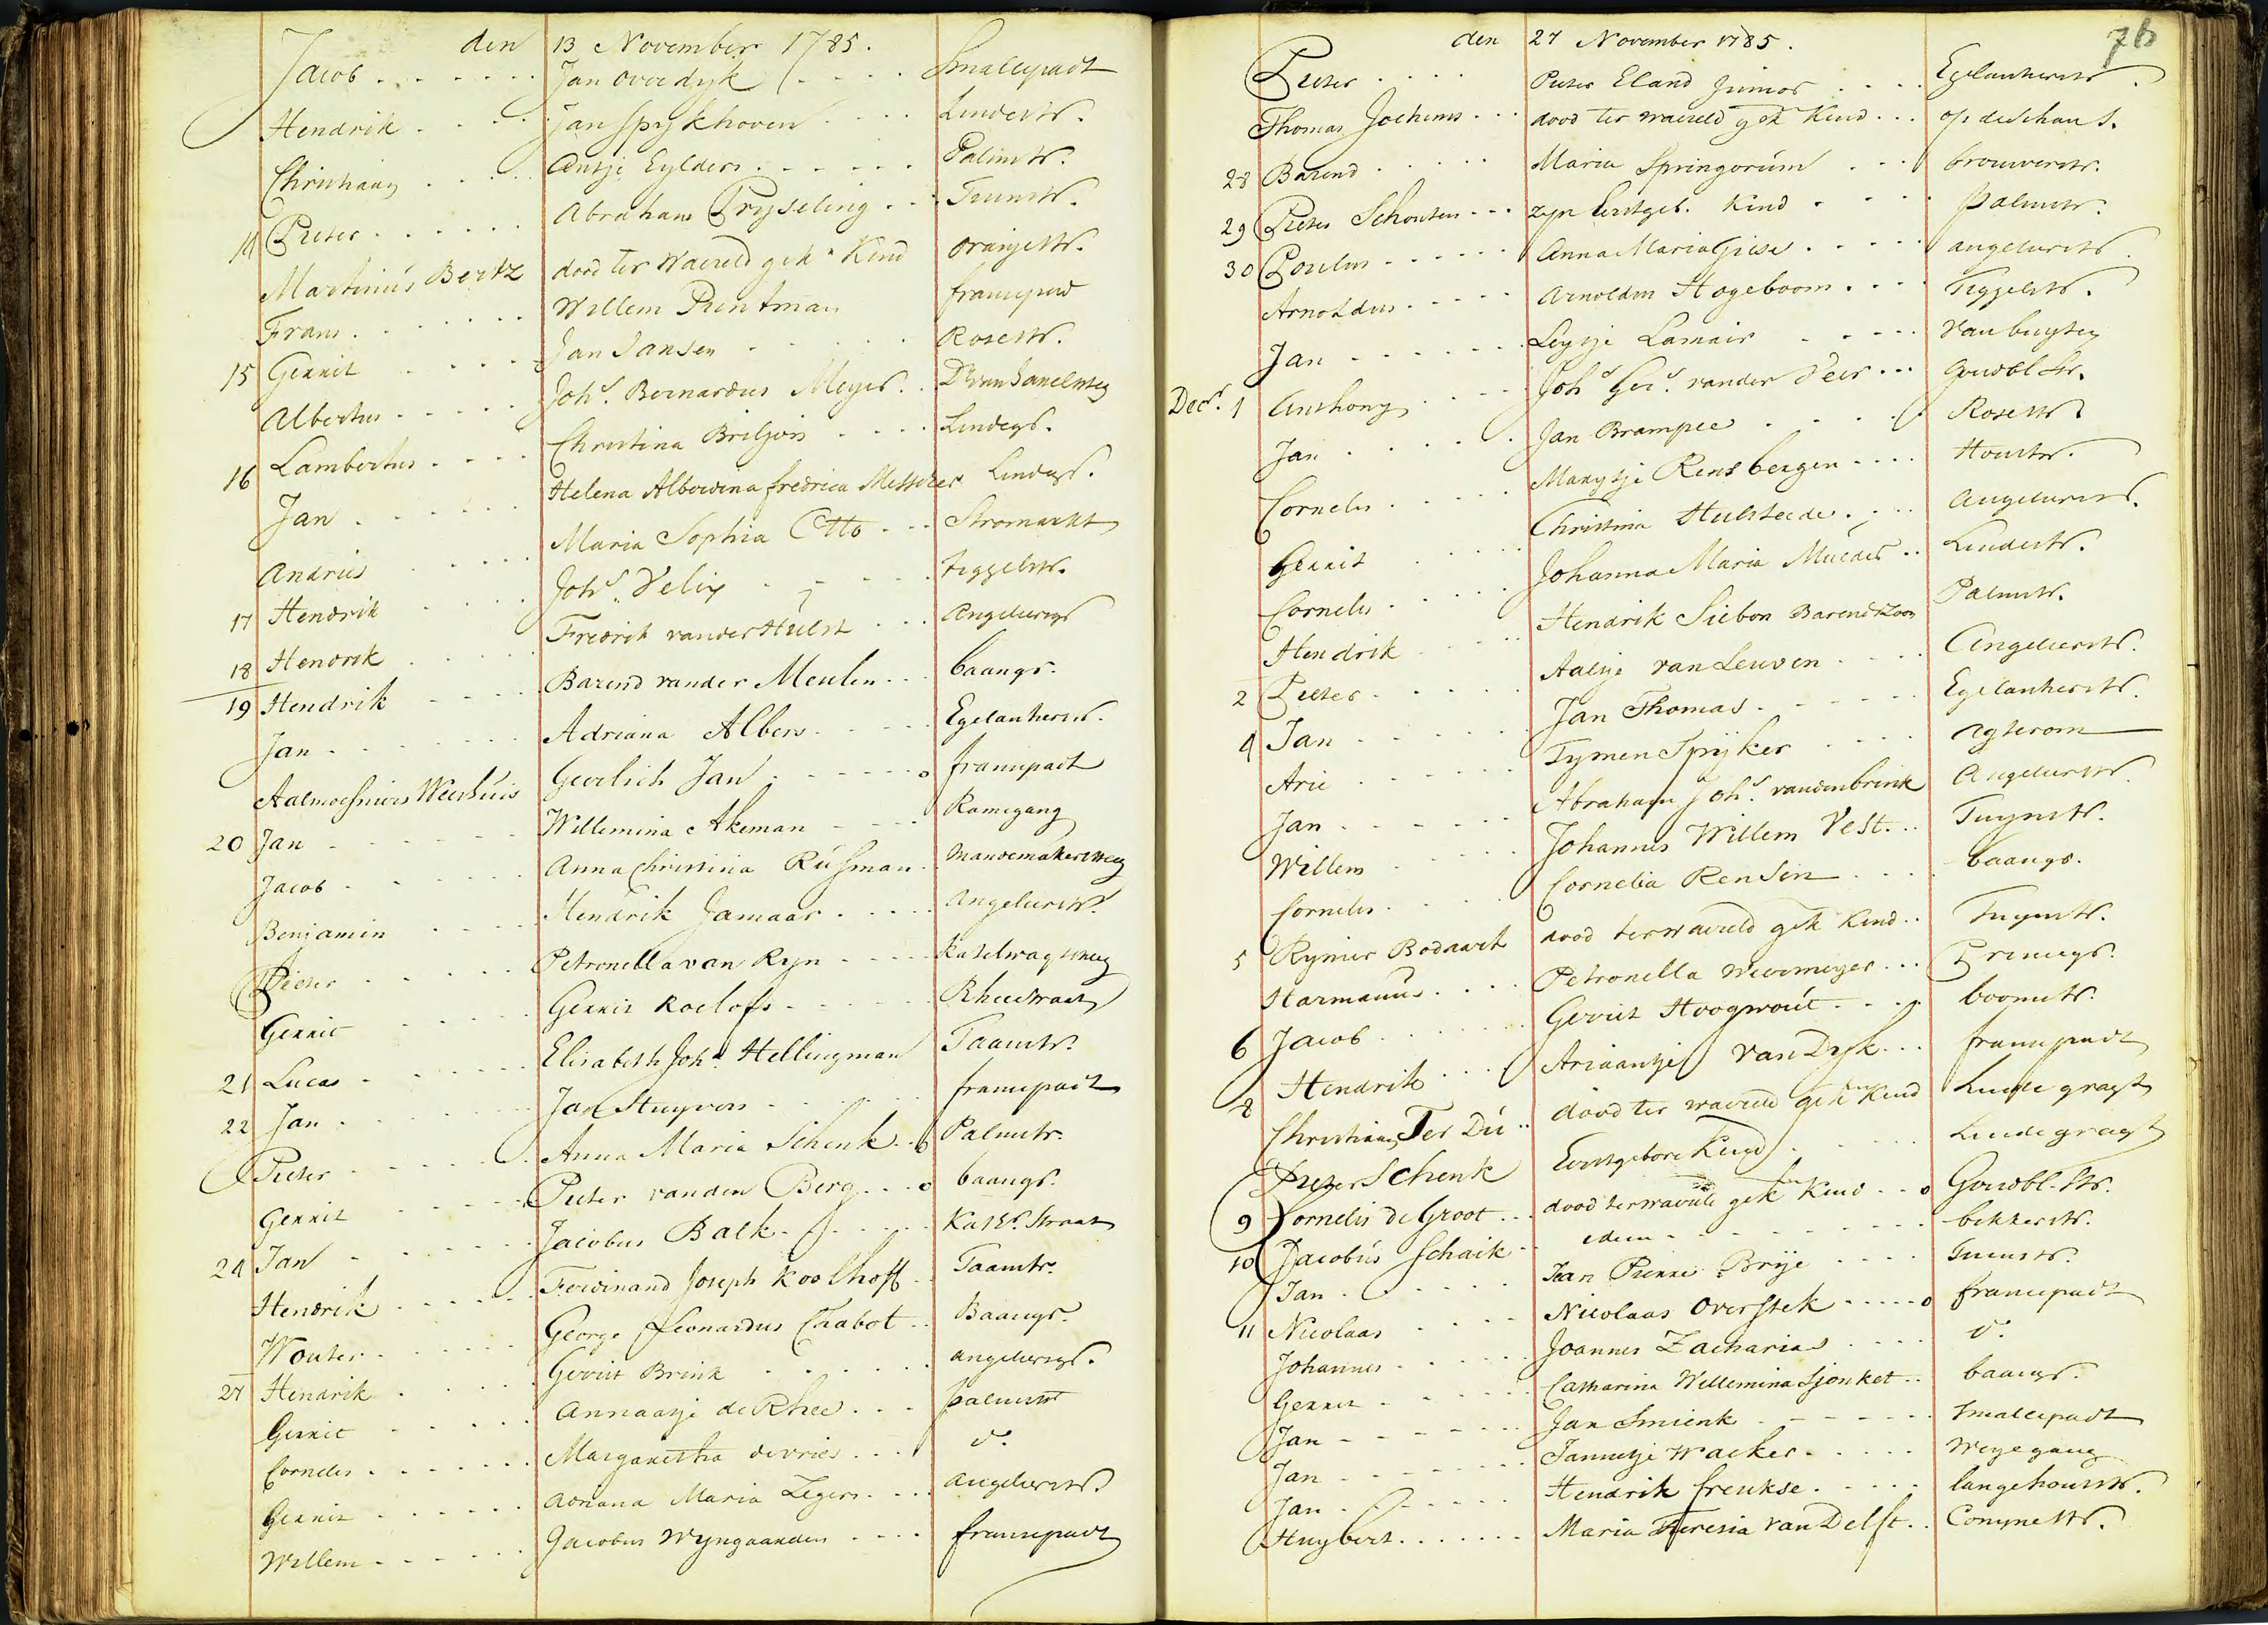 den 13 November 1785.
Jacob Jan Overdyk Smallepadt
Hendrik Jan Spykhoven Lindestr.
Christiaan Antje Eylders Palmstr.
14 Pieter Abraham Pryseling Tuinstr.
Martinus Bertz dood ter Waereld gek. Kind oranjestr.
Frans Willem Pruntman fransepad
15 Gerrit Jan Jansen Rosestr.
Albertus Johs. Bernardus Meyer
Lambertus Christina Briljon Lindegr.
16 Jan Helena Alberdina fredrica Lindegr.
Andries Maria Sophia Otto Stromarkt
17 Hendrik Johs. Velix tiggelstr.
18 Hendrik Fredrik vander Hulst Angeliersgr
19 Hendrik Barend vander Meulen baangr.
Jan Adriana Albers Egelantierstr.
Aalmoesniers Weeshuis Geerlich Jan fransepadt
20 Jan Willemina Akeman Ramegang
Jacob Anna Christina Rusman Mandemakersteeg
Benjamin Hendrik Jamaar Angelierstr.
Pieter Petronella van Ryn Ratelwagtsteeg
Gerrit Gerrit Roelofs Rheestraat
21 Lucas Elisabeth Joha. Hellingman Taanstr.
22 Jan Jan Stuyvers fransepadt
Pieter Anna Maria Schenk Palmstr.
Gerrit Pieter vanden Berg baangr.
24 Jan Jacobus Balk Katsr. Straat
Hendrik Ferdinand Joseph Koolhoff Taanstr.
Wouter George Leonardus Chabot Baangr.
27 Hendrik Gerrit Brink angeliersgr.
Gerrit Annaatje de Rhee palmstr
Cornelis Margaretha de vries do.
Gerrit Adriana Maria Zegers angelierstr.
Willem Jacobus Wyngaarden fransepadt
76
den 27 November 1785.
Pieter Pieter Eland Junior Egelantierstr.
Thomas Jochems dood ter waereld gek Kind op de Schans.
28 Barend Maria Springorum brouwerstr.
29 Pieter Schouten zyn Eerstgeb. Kind Palmstr.
30 Poulus Anna Maria Giese angelierstr.
Arnoldus Arnoldus Hogeboom Tiggelstr.
Jan Leytje Lamair van buyten
Decr. 1 Anthony Johs Gers. vander Veer Goudbl str.
Jan Jan Brampee Rosestr
Cornelis Marytje Rensbergen Houtstr.
Gerrit Christina Hulsteede Angelierstr.
Cornelis Johanna Maria Mulder Lindestr.
Hendrik Hendrik Siebon Barendtzoon Palmstr.
2 Pieter Aaltje van Leuven Angelierstr.
4 Jan Jan Thomas Egelantierstr.
Arie Tymen Spyker Agterom
Jan Abraham Johs. vandenbrink Angelierstr.
Willem Johannes Willem Vest Tuynstr.
Cornelis Cornelia Rensen baangr.
5 Rynier Bodaart dood ter waereld gek Kind Tuynstr.
Harmanus Petronella Princegr.
6 Jacob Gerrit Hoogwout boomstr.
Hendrik Ariaantje van Dyk fransepadt
8 Christiaan Ter Du dood ter waereld gek Kind Lindegragt
Pieter Schenk Eerstgeboren Kind Lindegragt
9 Cornelis de Groot dood ter waereld gek Kind Goudbl. str.
10 Jacobus Schaik idem bikkerstr.
Jan Jean Pierre Brije Tuinstr.
11 Nicolaas Nicolaas Overstek fransepadt
Johannes Joannes Zacharias do.
Gerrit Catharina Willemina Sjonket baangr.
Jan Jan Smienk Smallepadt
Jan Jannetje Wacker Weyegang
Jan Hendrik frenkse langehoutstr.
Huybert Maria Theresia van Delft Conynestr.